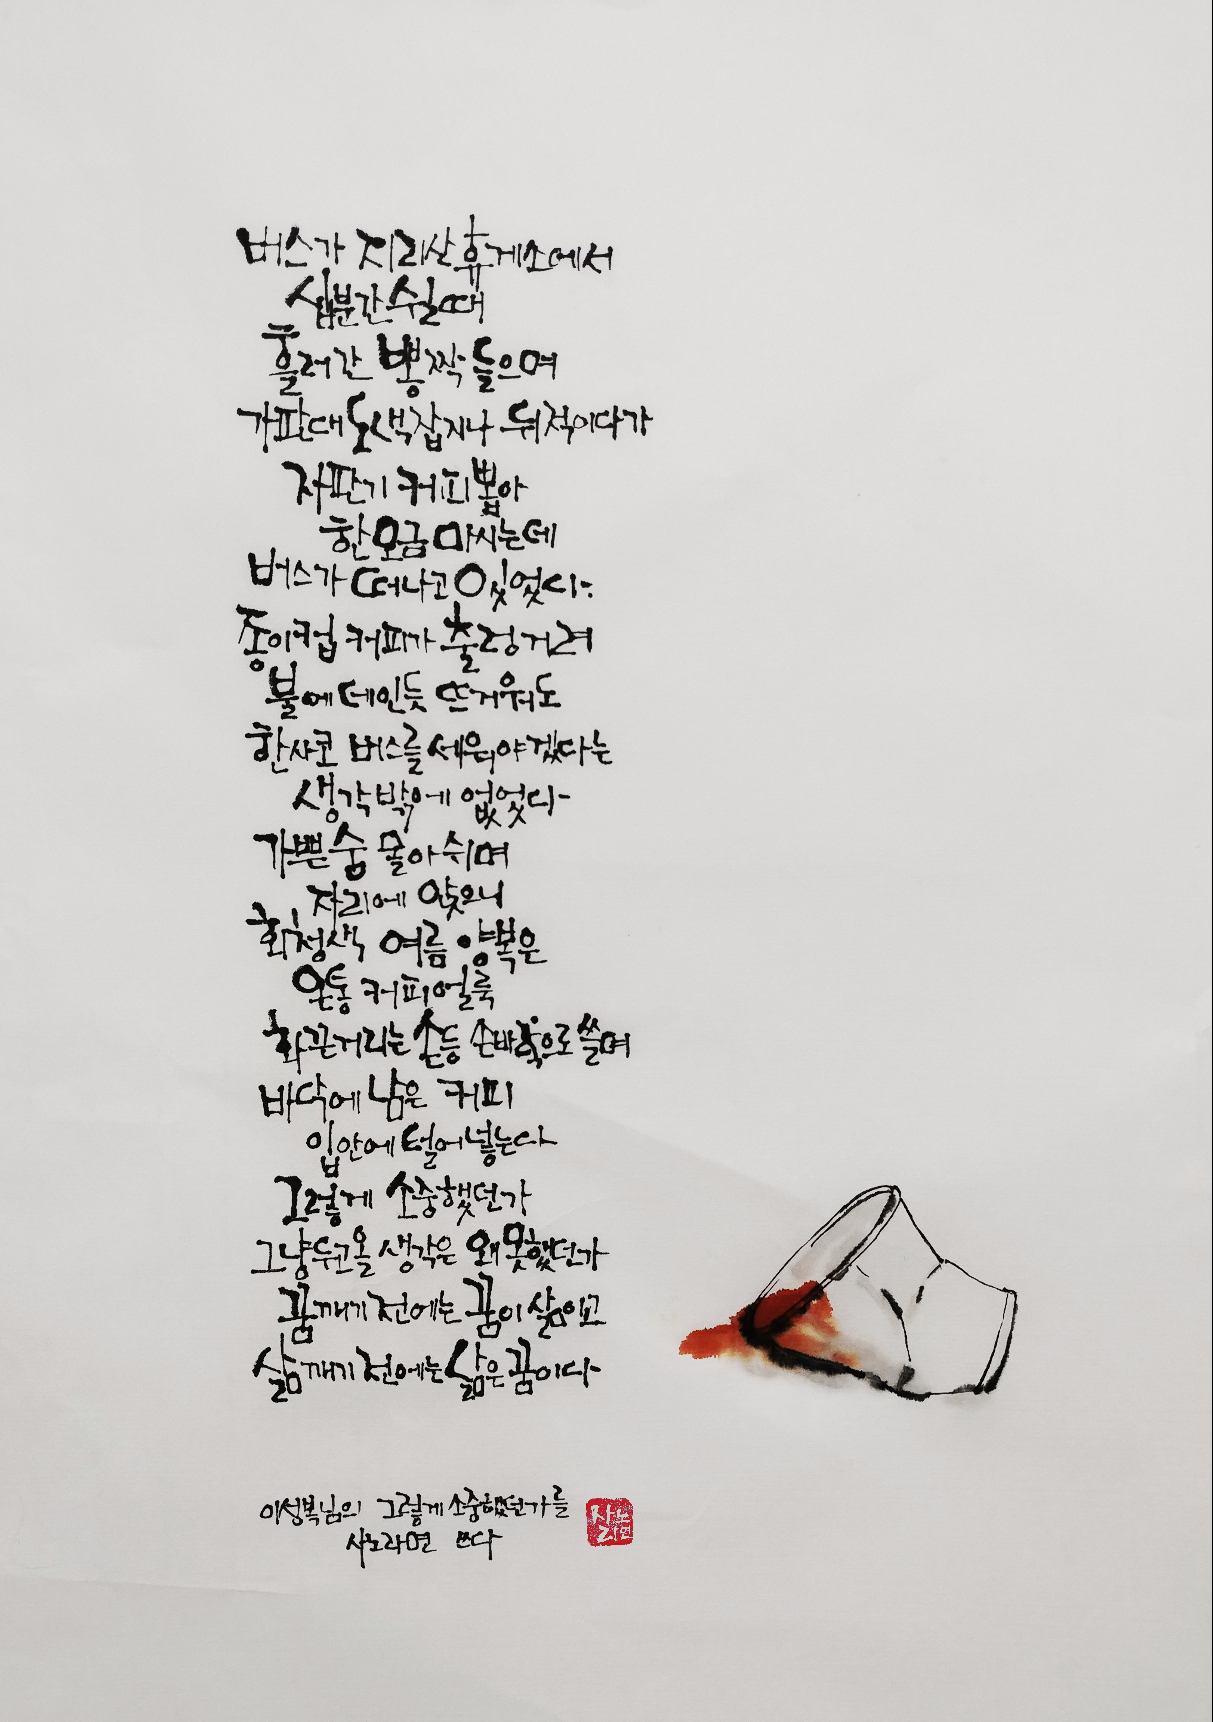 버스가 지리산 휴게소에서
십분간 쉴 때
흘러간 뽕짝 들으며
가판대 도색잡지나 뒤적이다가
자판기 커피 뽑아
한모금 마시는데
버스가 떠나고 있었다.
종이컵 커피가 출렁거려
불에 데인듯 뜨거워도
한사코 버스를 세워야겠다는
생각밖에 없었다
가쁜 숨 몰아쉬며
자리에 앉으니
회청색 여름 양복은
온통 커피얼룩
화끈거리는 손등 손바닥으로 쓸며
바닥에 남은 커피
입안에 털어넣는다
그렇게 소중했던가
그냥 두고올 생각은 왜 못했던가
꿈 깨기 전에는 꿈이 삶이고
삶 깨기 전에는 삶은 꿈이다
이성복님의 그렇게 소중했던가를
사노라면 쓰다
사노
라면